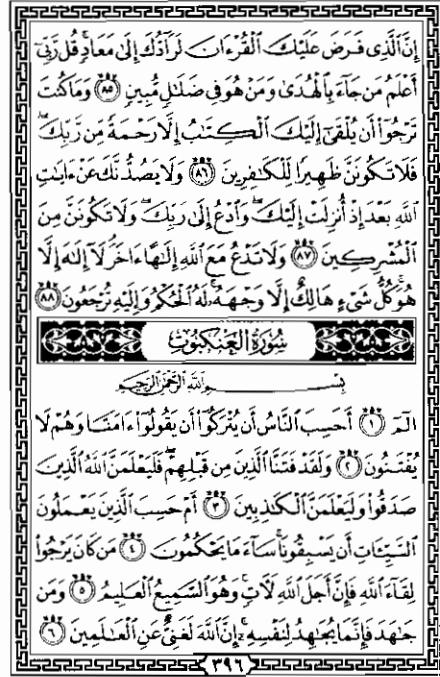 إِنَّ ٱلَّذِى فَرَضَ عَلَيْكَ ٱلْقُرْءَانَ لَرَآدُّكَ إِلَىٰ مَعَادٍ ۚ قُل رَّبِّىٓ
أَعْلَمُ مَن جَآءَ بِٱلْهُدَىٰ وَمَنْ هُوَ فِى ضَلَٰلٍ مُّبِينٍ ﴿٨٥﴾ وَمَا كُنتَ
تَرْجُوٓا۟ أَن يُلْقَىٰٓ إِلَيْكَ ٱلْكِتَٰبُ إِلَّا رَحْمَةً مِّن رَّبِّكَ ۖ
فَلَا تَكُونَنَّ ظَهِيرًا لِّلْكَٰفِرِينَ ﴿٨٦﴾ وَلَا يَصُدُّنَّكَ عَنْ ءَايَٰتِ
ٱللَّهِ بَعْدَ إِذْ أُنزِلَتْ إِلَيْكَ ۖ وَٱدْعُ إِلَىٰ رَبِّكَ ۖ وَلَا تَكُونَنَّ مِنَ
ٱلْمُشْرِكِينَ ﴿٨٧﴾ وَلَا تَدْعُ مَعَ ٱللَّهِ إِلَٰهًا ءَاخَرَ ۘ لَآ إِلَٰهَ إِلَّا
هُوَ ۚ كُلُّ شَىْءٍ هَالِكٌ إِلَّا وَجْهَهُۥ ۚ لَهُ ٱلْحُكْمُ وَإِلَيْهِ تُرْجَعُونَ ﴿٨٨﴾
سُورَةُ العَنكَبُوتِ
بِسْمِ ٱللَّهِ ٱلرَّحْمَٰنِ ٱلرَّحِيمِ
الٓمٓ ﴿١﴾ أَحَسِبَ ٱلنَّاسُ أَن يُتْرَكُوٓا۟ أَن يَقُولُوٓا۟ ءَامَنَّا وَهُمْ لَا
يُفْتَنُونَ ﴿٢﴾ وَلَقَدْ فَتَنَّا ٱلَّذِينَ مِن قَبْلِهِمْ ۖ فَلَيَعْلَمَنَّ ٱللَّهُ ٱلَّذِينَ
صَدَقُوا۟ وَلَيَعْلَمَنَّ ٱلْكَٰذِبِينَ ﴿٣﴾ أَمْ حَسِبَ ٱلَّذِينَ يَعْمَلُونَ
ٱلسَّيِّـَٔاتِ أَن يَسْبِقُونَا ۚ سَآءَ مَا يَحْكُمُونَ ﴿٤﴾ مَن كَانَ يَرْجُوا۟
لِقَآءَ ٱللَّهِ فَإِنَّ أَجَلَ ٱللَّهِ لَءَاتٍ ۚ وَهُوَ ٱلسَّمِيعُ ٱلْعَلِيمُ ﴿٥﴾ وَمَن
جَٰهَدَ فَإِنَّمَا يُجَٰهِدُ لِنَفْسِهِۦٓ ۚ إِنَّ ٱللَّهَ لَغَنِىٌّ عَنِ ٱلْعَٰلَمِينَ ﴿٦﴾
٣٩٦